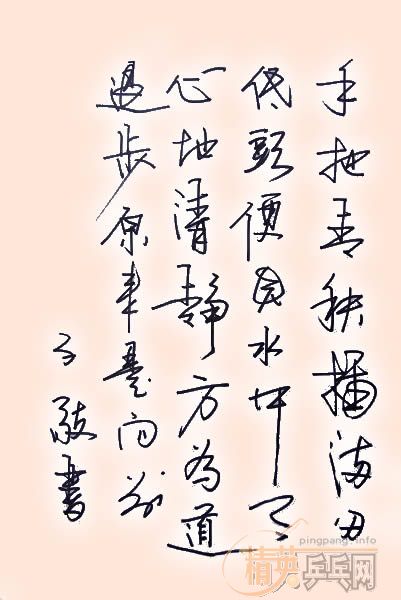 手把青秧插满田
低頭便見水中天
心地清靜方為道
退步原来是向前
敬書
pingpang.info
精英乒乓网